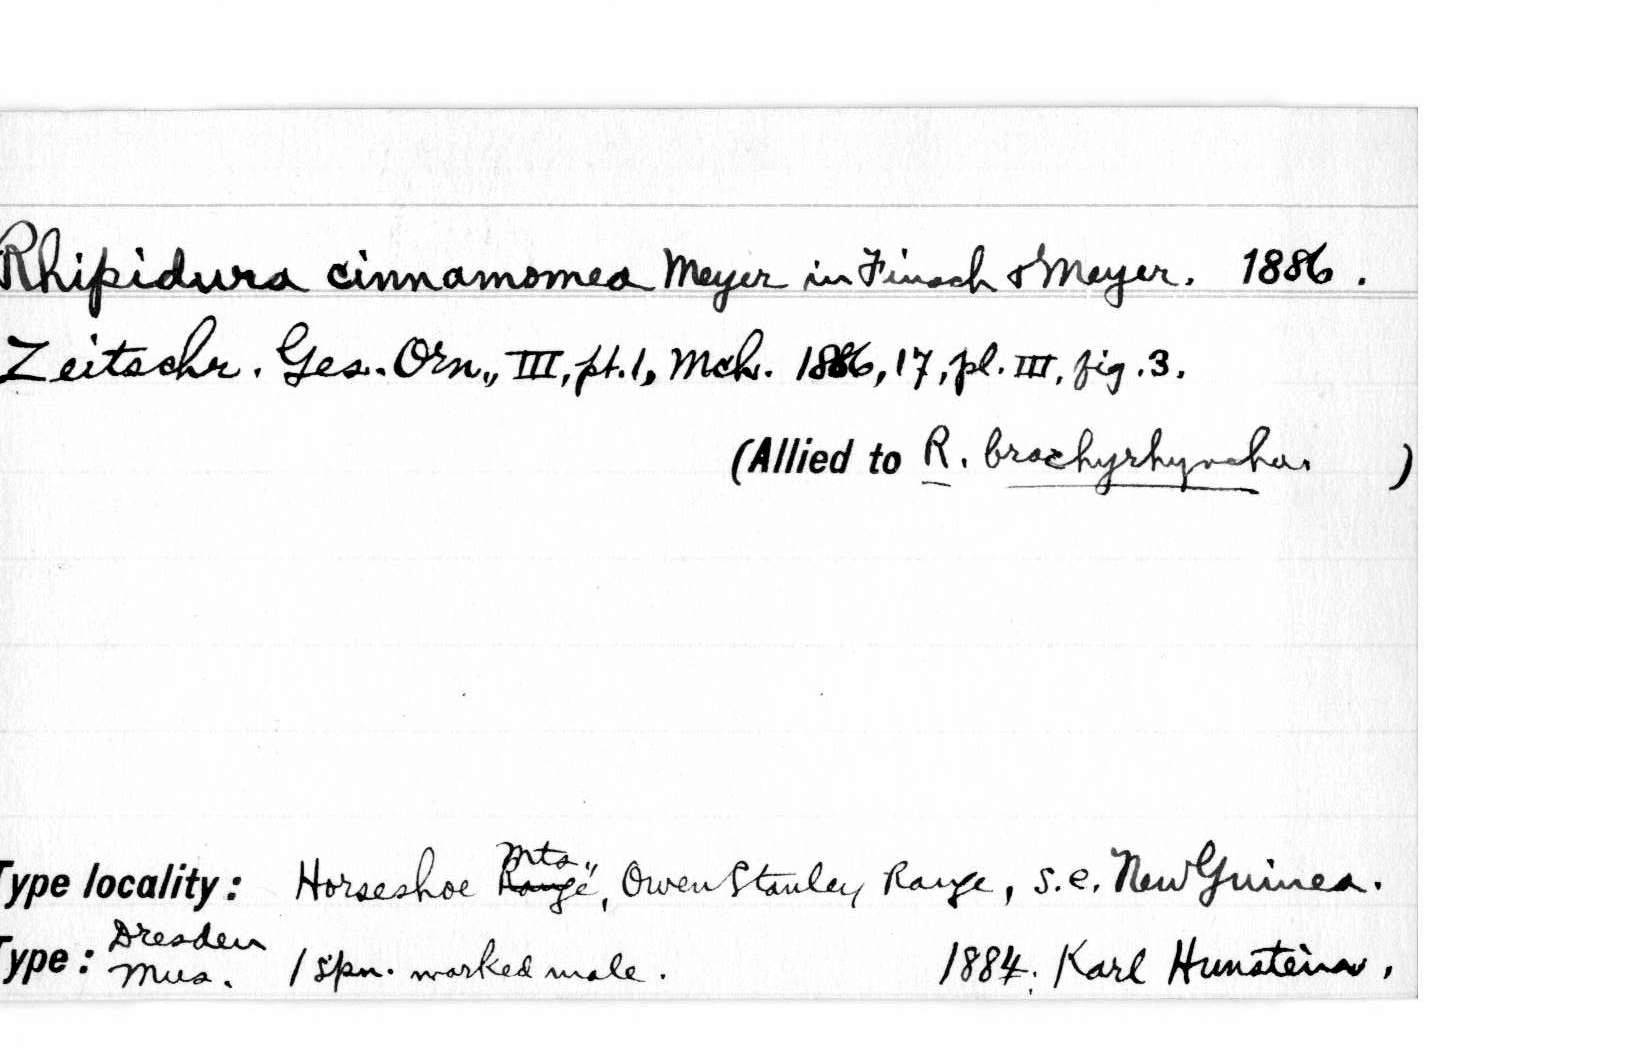 Rhipidura cinnamomea Meyer in Finsch & Meyer. 1886.
Zeitschr. Ges. Orn., III, pt.1, Mch. 1886, 17, pl. III, fig. 3.
(Allied to R. brachyrhyncha. )
Mts."
Type locality: Horseshoe Range, Owen Stanley Range, S.e. New Guinea.
Dresden
Type: Mus. 1 spn. marked male. 1884. Karl Hunstein.